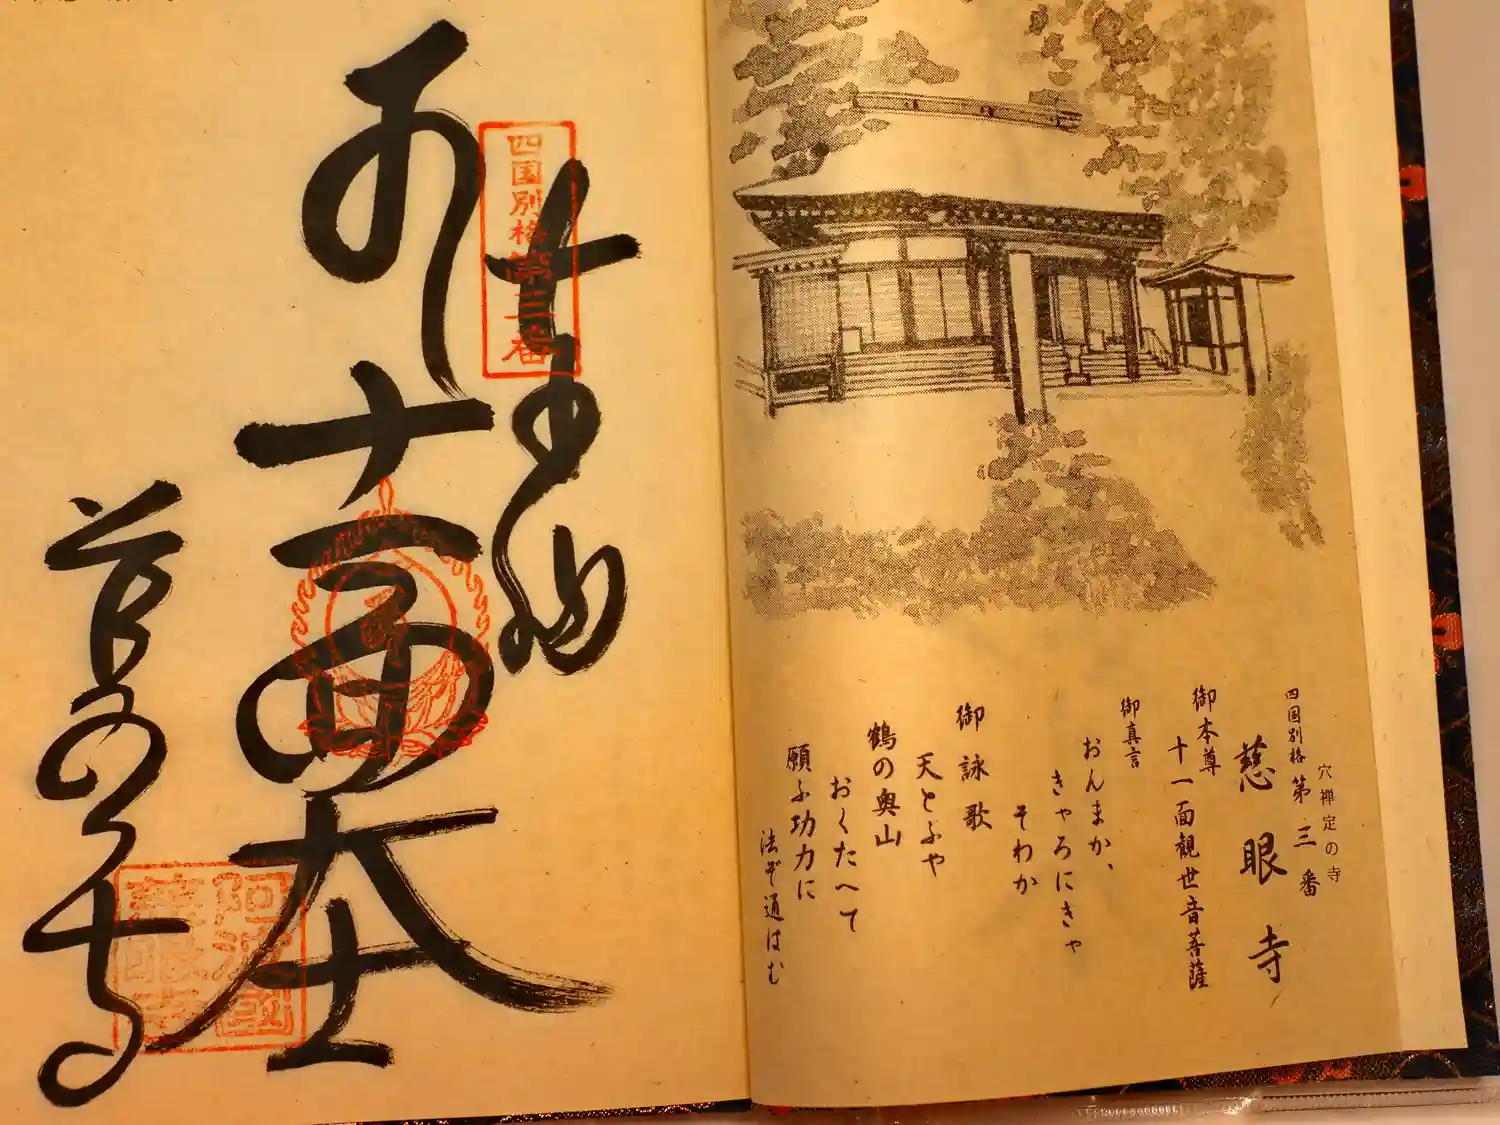 穴禅定の寺
四国別格 第三番
慈眼寺
御本尊
十一面観世音菩薩
御真言
おんまか、
きゃろにきゃ
そわか
御詠歌
天とふや
鶴の奥山
おくたへて
願ふ功力に
法ぞ通はむ
四国別格第三番
十一面大士
慈眼寺
阿波國
慈眼寺